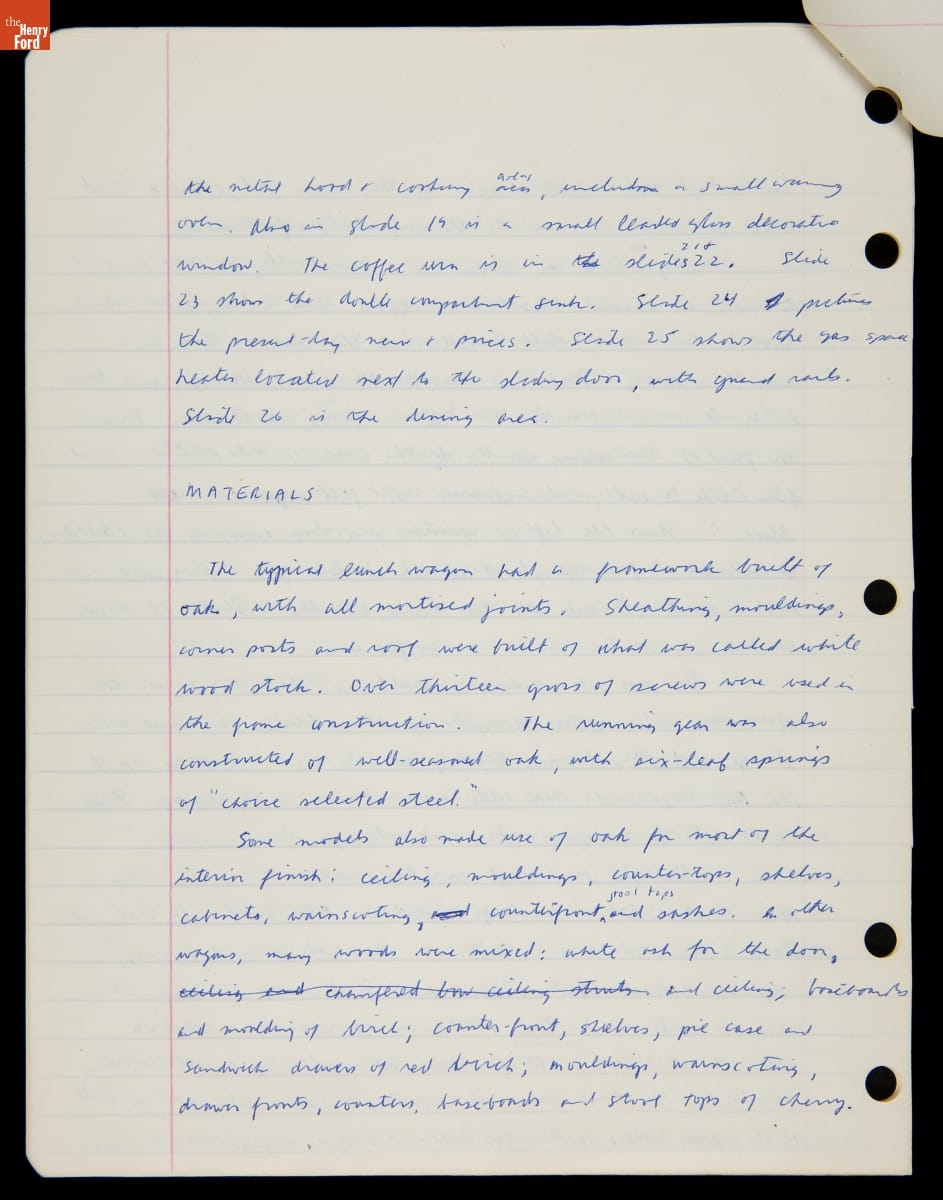 the Henry Ford
the metal hood & cooking areas, includes a small warming
oven. Also in slide 19 is a small leaded glass decorative
window. The coffee urn is in slides 21 & 22. Slide
23 shows the double compartment sink. Slide 24 pictures
the present-day menu & prices. Slide 25 shows the gas space
heater located next to the sliding door, with guard rails.
Slide 26 is the dining area.
MATERIALS
The typical lunch wagon had a framework built of
oak, with all mortised joints. Sheathing, mouldings,
corner posts and roof were built of what was called white
wood stock. Over thirteen gross of screws were used in
the frame construction. The running gear was also
constructed of well-seasoned oak, with six-leaf springs
of "choice selected steel."
Some models also made use of oak for most of the
interior finish: ceiling, mouldings, counter-tops, shelves,
cabinets, wainscoting, and counterfront, stool tops and sashes. In other
wagons, many woods were mixed: white ash for the door,
ceiling and chamfered bow ceiling struts and ceiling; baseboards
and moulding of birch; counter-front, shelves, pie case and
sandwich drawers of red birch; mouldings, wainscoting,
drawer fronts, counters, baseboards and stool tops of cherry.